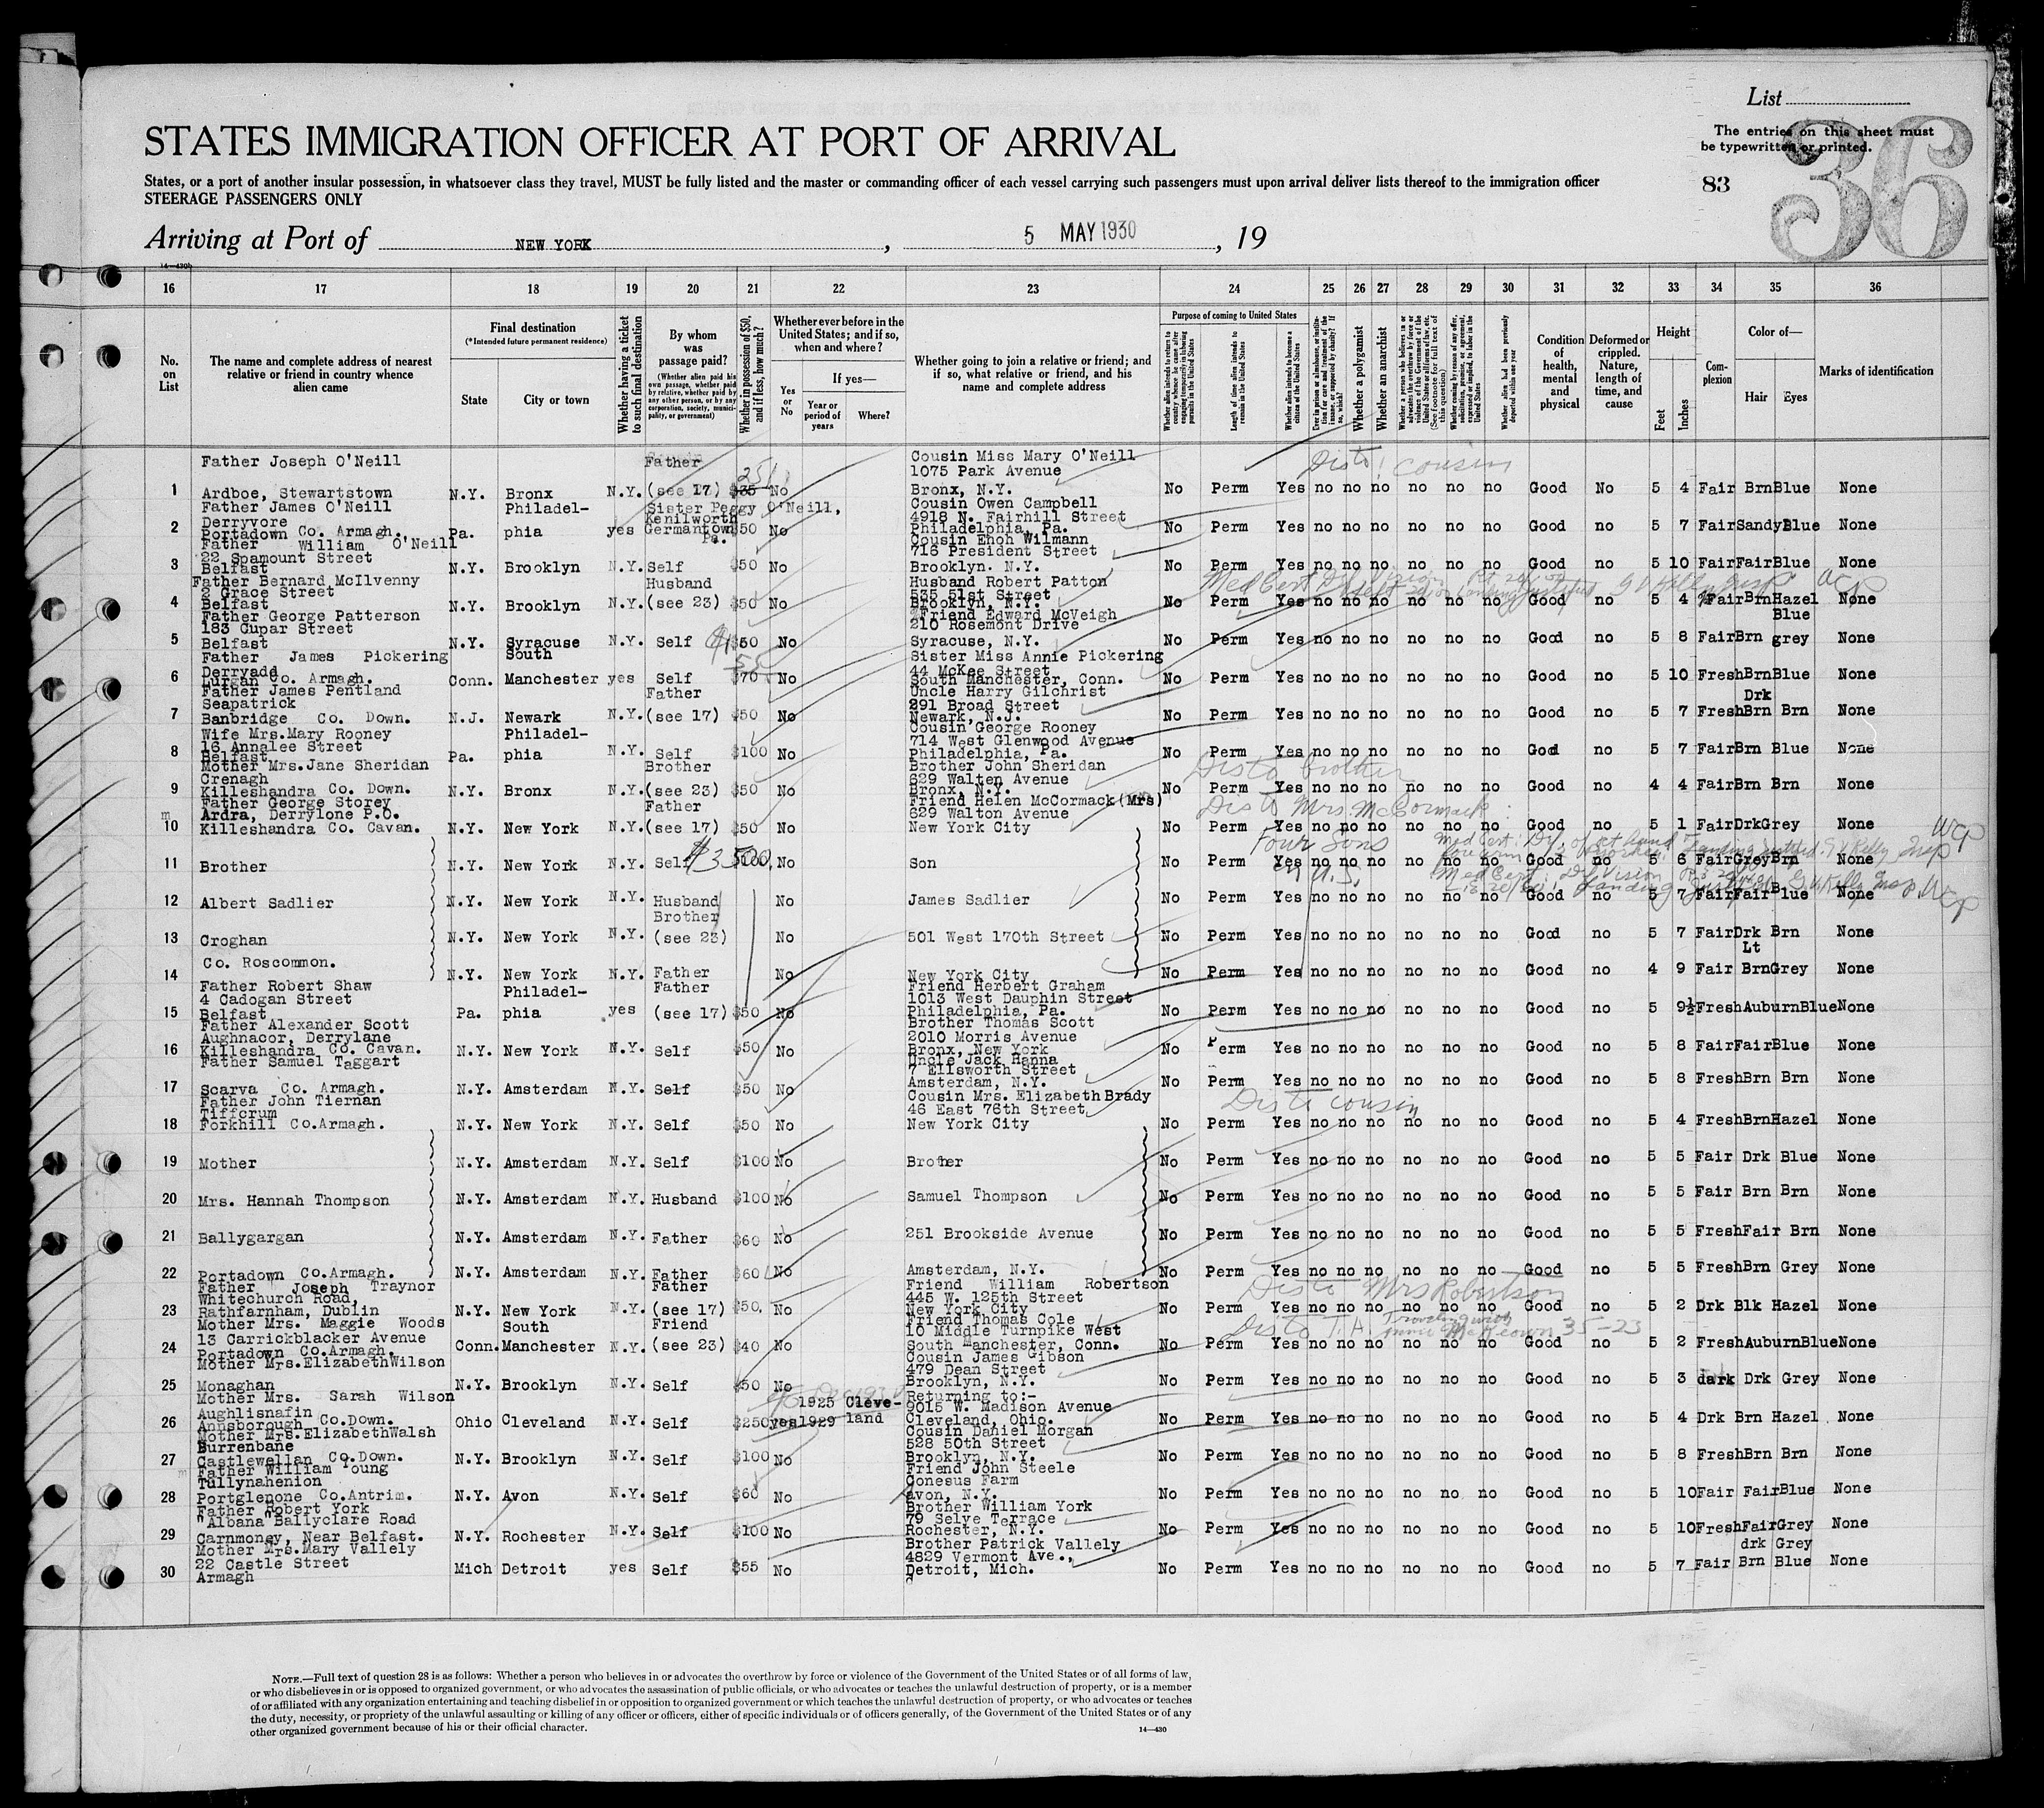 List
The entries on this sheet must
be typewritten or printed.
36
83
STATES IMMIGRATION OFFICER AT PORT OF ARRIVAL
States, or a port of another insular possession, in whatsoever class they travel, MUST be fully listed and the master or commanding officer of each vessel carrying such passengers must upon arrival deliver lists thereof to the immigration officer
STEERAGE PASSENGERS ONLY
Arriving at Port of NEW YORK, 5 MAY 1930, 19
14—430b
16 17 18 19 20 21 22 23 24 25 26 27 28 29 30 31 32 33 34 35 36
No. on List
The name and complete address of nearest relative or friend in country whence alien came
Final destination
(*Intended future permanent residence)
State
City or town
Whether having a ticket to such final destination
By whom was passage paid?
(Whether alien paid his own passage, whether paid by relative, whether paid by any other person, or by any corporation, society, municipality, or government)
Whether in possession of $50, and if less, how much?
Whether ever before in the United States; and if so, when and where?
Yes or No
If yes—
Year or period of years
Where?
Whether going to join a relative or friend; and if so, what relative or friend, and his name and complete address
Purpose of coming to United States
Length of time alien intends to remain in the United States
Whether alien intends to become a citizen of the United States
Whether a polygamist
Whether an anarchist
Condition of health, mental and physical
Deformed or crippled. Nature, length of time, and cause
Height
Feet
Inches
Complexion
Color of—
Hair
Eyes
Marks of identification
Father Joseph O'Neill Father Cousin Miss Mary O'Neill
1075 Park Avenue Disto cousin
1 Ardboe, Stewartstown N.Y. Bronx N.Y. (see 17) $35 No Bronx, N.Y. No Perm Yes no no no no no no Good No 5 4 Fair Brn Blue None
Father James O'Neill Philadel- Sister Peggy O'Neill, Cousin Owen Campbell
Derryvore Kenilworth 4918 N. Fairhill Street
2 Portadown Co. Armagh. Pa. phia yes Germantown Pa. $50 No Philadelphia, Pa. No Perm Yes no no no no no no Good no 5 7 Fair Sandy Blue None
Father William O'Neill Cousin Enoh Wilmann
22 Spamount Street 716 President Street
3 Belfast N.Y. Brooklyn N.Y. Self $50 No Brooklyn. N.Y. No Perm Yes no no no no no no Good no 5 10 Fair Fair Blue None
Father Bernard McIlvenny Husband Husband Robert Patton
2 Grace Street 535 51st Street
4 Belfast N.Y. Brooklyn N.Y. (see 23) $50 No Brooklyn, N.Y. No Perm Yes no no no no no no Good no 5 4 Fair Brn Hazel None
Father George Patterson Friend Edward McVeigh
183 Cupar Street 210 Rosemont Drive Blue
5 Belfast N.Y. Syracuse N.Y. Self $50 No Syracuse, N.Y. No Perm Yes no no no no no no Good no 5 8 Fair Brn grey None
Father James Pickering South Sister Miss Annie Pickering
Derryadd 44 McKee Street
6 Lurgan Co. Armagh. Conn. Manchester yes Self $70 No South Manchester, Conn. No Perm Yes no no no no no no Good no 5 10 Fresh Brn Blue None
Father James Pentland Father Uncle Harry Gilchrist
Seapatrick 291 Broad Street Drk
7 Banbridge Co. Down. N.J. Newark N.Y. (see 17) $50 No Newark, N.J. No Perm Yes no no no no no no Good no 5 7 Fresh Brn Brn None
Wife Mrs. Mary Rooney Philadel- Cousin George Rooney
16 Annalee Street 714 West Glenwood Avenue
8 Belfast Pa. phia N.Y. Self $100 No Philadelphia, Pa. No Perm Yes no no no no no no Good no 5 7 Fair Brn Blue None
Mother Mrs. Jane Sheridan Brother Brother John Sheridan Disto brother
Crenagh 629 Walten Avenue
9 Killeshandra Co. Down. N.Y. Bronx N.Y. (see 23) $50 No Bronx, N.Y. No Perm Yes no no no no no no Good no 4 4 Fair Brn Brn None
Father George Storey Father Friend Helen McCormack (Mrs) Disto Mrs. McCormack
Ardra, Derrylone P.O. 629 Walton Avenue
10 Killeshandra Co. Cavan. N.Y. New York N.Y. (see 17) $50 No New York City No Perm Yes no no no no no no Good no 5 1 Fair Drk Grey None
Four Sons in U.S.
11 Brother N.Y. New York N.Y. Self $3500 $100 No Son No Perm Yes no no no no no no Good no 5 6 Fair Grey Brn None
12 Albert Sadlier N.Y. New York N.Y. Husband James Sadlier No Perm Yes no no no no no no Good no 5 7 Fair Fair Blue
Brother
13 Croghan N.Y. New York N.Y. (see 23) No 501 West 170th Street No Perm Yes no no no no no no Good no 5 7 Fair Drk Brn None
Co. Roscommon. Lt
14 N.Y. New York N.Y. Father No New York City No Perm Yes no no no no no no Good no 4 9 Fair Brn Grey None
Father Robert Shaw Philadel- Father Friend Herbert Graham
4 Cadogan Street 1013 West Dauphin Street
15 Belfast Pa. phia yes (see 17) $50 No Philadelphia, Pa. No Perm Yes no no no no no no Good no 5 9½ Fresh Auburn Blue None
Father Alexander Scott Brother Thomas Scott
Aughnacor, Derrylane 2010 Morris Avenue
16 Killeshandra Co. Cavan. N.Y. New York N.Y. Self $50 No Bronx, New York No Perm Yes no no no no no no Good no 5 8 Fair Fair Blue None
Father Samuel Taggart Uncle Jack Hanna
7 Ellsworth Street
17 Scarva Co. Armagh. N.Y. Amsterdam N.Y. Self $50 No Amsterdam, N.Y. No Perm Yes no no no no no no Good no 5 8 Fresh Brn Brn None
Father John Tiernan Cousin Mrs. Elizabeth Brady Disto cousin
Tiffcrum 46 East 76th Street
18 Forkhill Co. Armagh. N.Y. New York N.Y. Self $50 No New York City No Perm Yes no no no no no no Good no 5 4 Fresh Brn Hazel None
19 Mother N.Y. Amsterdam N.Y. Self $100 No Brother No Perm Yes no no no no no no Good no 5 5 Fair Drk Blue None
20 Mrs. Hannah Thompson N.Y. Amsterdam N.Y. Husband $100 No Samuel Thompson No Perm Yes no no no no no no Good no 5 5 Fair Brn Brn None
21 Ballygargan N.Y. Amsterdam N.Y. Father $60 No 251 Brookside Avenue No Perm Yes no no no no no no Good no 5 5 Fresh Fair Brn None
22 Portadown Co. Armagh. N.Y. Amsterdam N.Y. Father $60 No Amsterdam, N.Y. No Perm Yes no no no no no no Good no 5 5 Fresh Brn Grey None
Father Joseph Traynor Father Friend William Robertson Disto Mrs Robertson
Whitechurch Road, 445 W. 125th Street
23 Rathfarnham, Dublin N.Y. New York N.Y. (see 17) $50 No New York City No Perm Yes no no no no no no Good no 5 2 Drk Blk Hazel None
Mother Mrs. Maggie Woods South Friend Friend Thomas Cole
13 Carrickblacker Avenue 10 Middle Turnpike West
24 Portadown Co. Armagh. Conn. Manchester N.Y. (see 23) $40 No South Manchester, Conn. No Perm Yes no no no no no no Good no 5 2 Fresh Auburn Blue None
Mother Mrs. Elizabeth Wilson Cousin James Gibson
479 Dean Street
25 Monaghan N.Y. Brooklyn N.Y. Self $50 No Brooklyn, N.Y. No Perm Yes no no no no no no Good no 5 3 dark Drk Grey None
Mother Mrs. Sarah Wilson Returning to:-
Aughlisnafin 1925 Cleve- 9015 W. Madison Avenue
26 Annsborough Co. Down. Ohio Cleveland N.Y. Self $250 yes 1929 land Cleveland, Ohio. No Perm Yes no no no no no no Good no 5 4 Drk Brn Hazel None
Mother Mrs. Elizabeth Walsh Cousin Daniel Morgan
Burrenbane 528 50th Street
27 Castlewellan Co. Down. N.Y. Brooklyn N.Y. Self $100 No Brooklyn, N.Y. No Perm Yes no no no no no no Good no 5 8 Fresh Brn Brn None
Father William Young Friend John Steele
Tullynahenion Conesus Farm
28 Portglenone Co. Antrim. N.Y. Avon N.Y. Self $60 No Avon, N.Y. No Perm Yes no no no no no no Good no 5 10 Fair Fair Blue None
Father Robert York Brother William York
"Albana" Ballyclare Road 79 Selye Terrace
29 Carnmoney, Near Belfast. N.Y. Rochester N.Y. Self $100 No Rochester, N.Y. No Perm Yes no no no no no no Good no 5 10 Fresh Fair Grey None
Mother Mrs. Mary Vallely Brother Patrick Vallely drk Grey
22 Castle Street 4829 Vermont Ave.,
30 Armagh Mich Detroit yes Self $55 No Detroit, Mich. No Perm Yes no no no no no no Good no 5 7 Fair Brn Blue None
NOTE.—Full text of question 28 is as follows: Whether a person who believes in or advocates the overthrow by force or violence of the Government of the United States or of all forms of law,
or who disbelieves in or is opposed to organized government, or who advocates the assassination of public officials, or who advocates or teaches the unlawful destruction of property, or is a member
of or affiliated with any organization entertaining and teaching disbelief in or opposition to organized government or which teaches the unlawful destruction of property, or who advocates or teaches
the duty, necessity, or propriety of the unlawful assaulting or killing of any officer or officers, either of specific individuals or of officers generally, of the Government of the United States or of any
other organized government because of his or their official character.
14—430